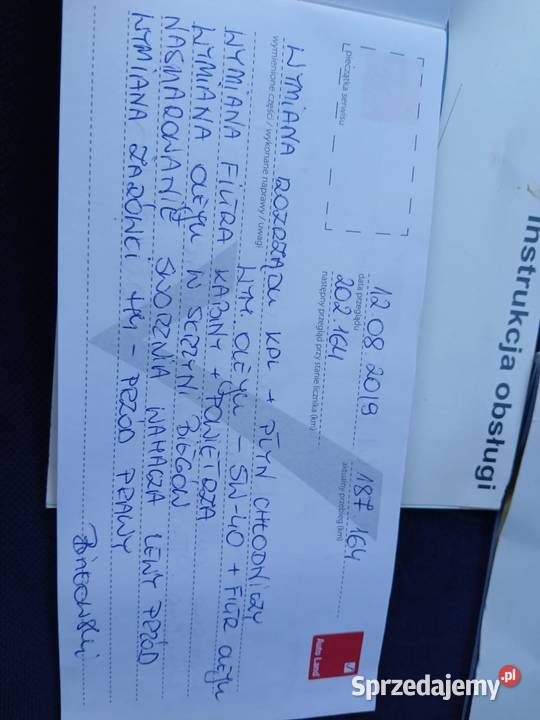 Instrukcja obsługi
pieczątka serwisu
12 08 2019
data przeglądu
187 164
aktualny przebieg (km)
202 164
następny przegląd przy stanie licznika (km)
Auto Land
WYMIANA ROZRZĄDU KPL + PŁYN CHŁODNICZY
wymienione części / wykonane naprawy / uwagi
WYM OLEJU - 5W-40 + FILTR OLEJU
WYMIANA FILTRA KABINY + POWIETRZA
WYMIANA OLEJU W SKRZYNI BIEGÓW
NASMAROWANIE SWORZNIA WAHACZA LEWY PRZÓD
WYMIANA ŻARÓWKI H4 - PRZÓD PRAWY
Sprzedajemy.pl